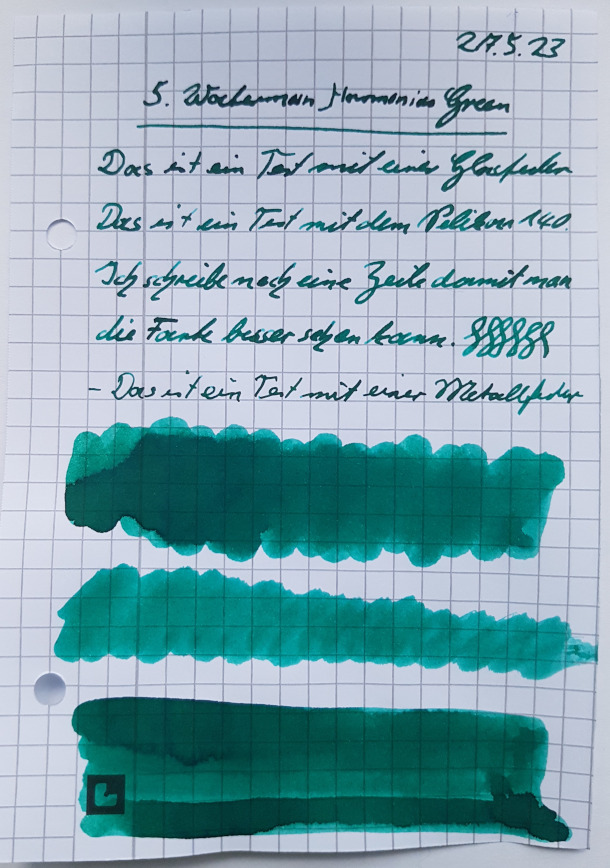 27.5.23
5. Waterman Harmonias Green
Das ist ein Test mit einer Glasfeder
Das ist ein Test mit dem Pelikan 140.
Ich schreibe noch eine Zeile damit man
die Farbe besser sehen kann.
- Das ist ein Test mit einer Metallfeder